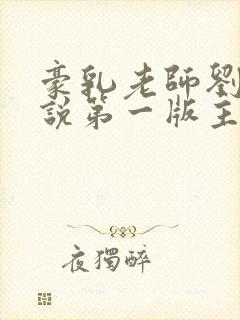 豪乳老師劉
說第一版主
夜獨醉